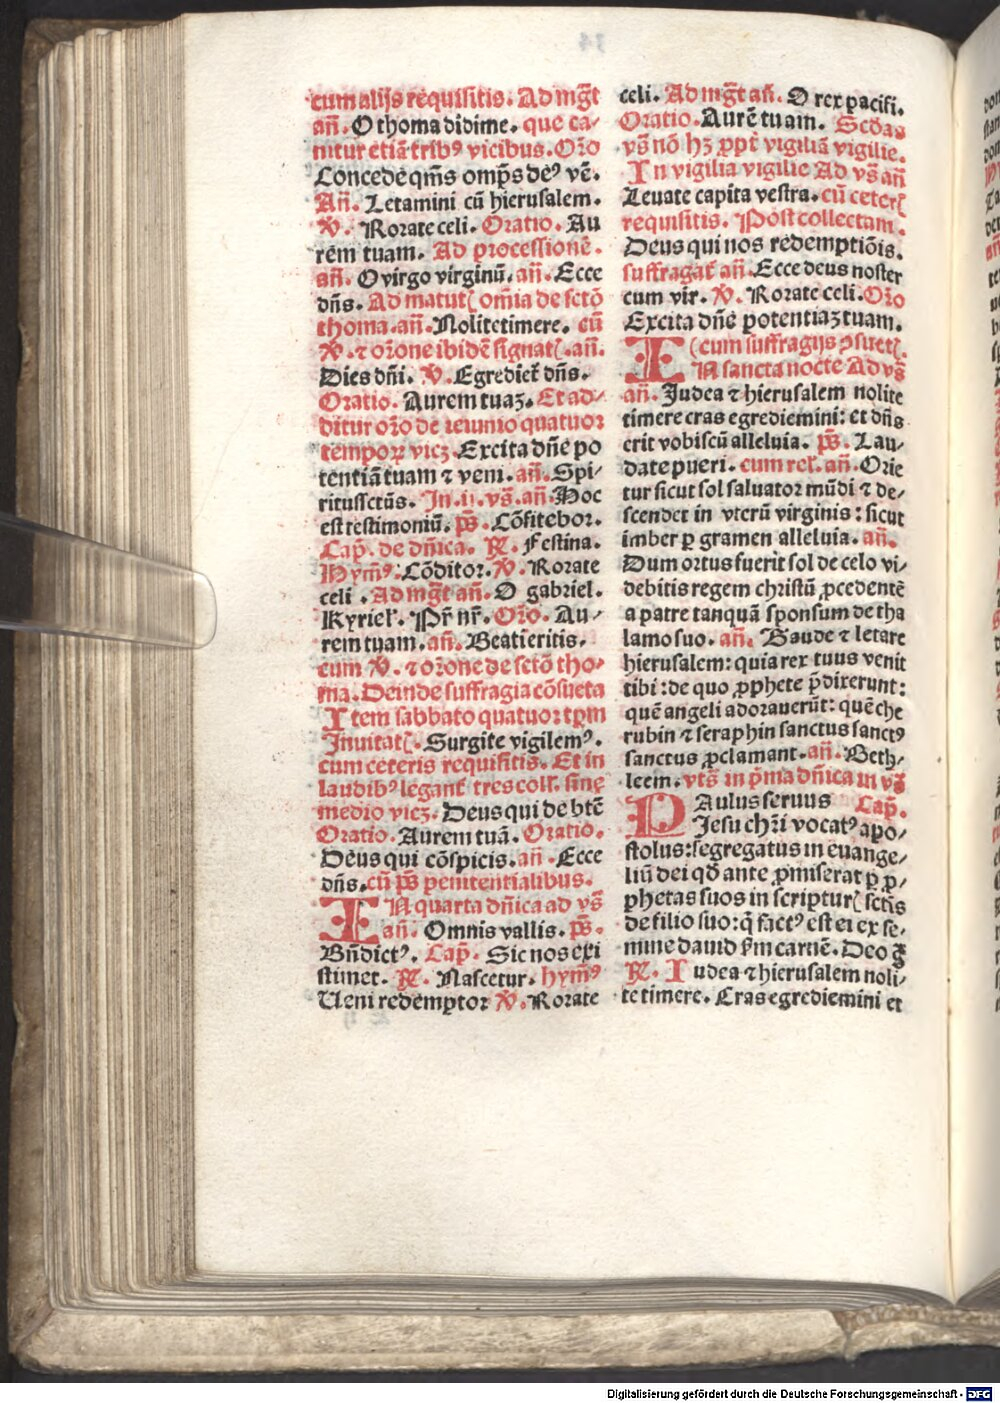 cum alijs requisitis. Ad mgt̄
an̄. O thoma didime. que ca⸗
nitur etiā tribꝰ vicibus. Or̄o
Concede qm̄s omp̄s deꝰ vē.
An̄. Letamini cū hierusalem.
℣. Rorate celi. Oratio. Au
rem tuam. Ad processionē.
an̄. O virgo virginū. an̄. Ecce
dn̄s. Ad matut̄ om̄ia de sctō
thoma. an̄. Nolite timere. cū
℣. ⁊ or̄one ibidē signat̄. an̄.
Dies dn̄i. ℣. Egrediet̄ dn̄s.
Oratio. Aurem tuaꝫ. Et ad⸗
ditur or̄o de ieiunio quatuor
temporꝝ vicꝫ. Excita dn̄e po
tentiā tuam ⁊ veni. an̄. Spi⸗
ritussctūs. In .ij. vs̄. an̄. Hoc
est testimoniū. ps̄. Cōfitebor.
Cap̄. de dn̄ica. ℟. Festina.
Hym̄ꝰ. Cōditor. ℣. Rorate
celi. Ad mgt̄ an̄. O gabriel.
Kyriel̄. Pr̄ nr̄. Or̄o. Au⸗
rem tuam. an̄. Beati eritis.
cum ℣. ⁊ or̄one de sctō tho⸗
ma. Deinde suffragia cōsueta
Item sabbato quatuor tp̄m
Inuitat̄. Surgite vigilemꝰ.
cum ceteris requisitis. Et in
laudibꝰ legant̄ tres coll̄. sine
medio vicꝫ. Deus qui de btē
Oratio. Aurem tuā. Oratio.
Deus qui cōspicis. an̄. Ecce
dn̄s. cū ps̄ penitentialibus.
IN quarta dn̄ica ad vs̄
an̄. Omnis vallis. ps̄.
Bn̄dictꝰ. Cap̄. Sic nos exi
stimet. ℟. Nascetur. hym̄ꝰ
Veni redemptor ℣. Rorate
celi. Ad mgt̄ an̄. O rex pacifi.
Oratio. Aurē tuam. Scd̄as
vs̄ nō hꝫ ꝓpt̄ vigiliā vigilie.
In vigilia vigilie Ad vs̄ an̄
Leuate capita vestra. cū ceter̄
requisitis. Post collectam.
Deus qui nos redemptiōis.
suffragat̄ an̄. Ecce deus noster
cum vir̄. ℣. Rorate celi. Or̄o
Excita dn̄e potentiaꝫ tuam.
(cum suffragijs ꝯsuet̄.
IN sancta nocte Ad vs̄
an̄. Judea ⁊ hierusalem nolite
timere cras egrediemini: et dn̄s
erit vobiscū alleluia. ps̄. Lau⸗
date pueri. cum rel̄. an̄. Orie
tur sicut sol saluator mūdi ⁊ de⸗
scendet in vterū virginis: sicut
imber ꝑ gramen alleluia. an̄.
Dum ortus fuerit sol de celo vi⸗
debitis regem christū ꝓcedentē
a patre tanquā sponsum de tha
lamo suo. an̄. Gaude ⁊ letare
hierusalem: quia rex tuus venit
tibi: de quo ꝓphete p̄dixerunt:
quē angeli adorauerūt: quē che
rubin ⁊ seraphin sanctus sanctꝰ
sanctus ꝓclamant. an̄. Beth⸗
leem. vts̄ in p̄ma dn̄ica in vs̄
PAulus seruus Cap̄.
Jesu chr̄i vocatꝰ apo⸗
stolus: segregatus in euange⸗
liū dei qd̄ ante ꝓmiserat ꝑ ꝓ⸗
phetas suos in scriptur̄ sctīs
de filio suo: q̄ factꝰ est ei ex se⸗
mine dauid sm̄ carnē. Deo g̃
℟. Iudea ⁊ hierusalem noli⸗
te timere. Cras egrediemini et
Digitalisierung gefördert durch die Deutsche Forschungsgemeinschaft - DFG